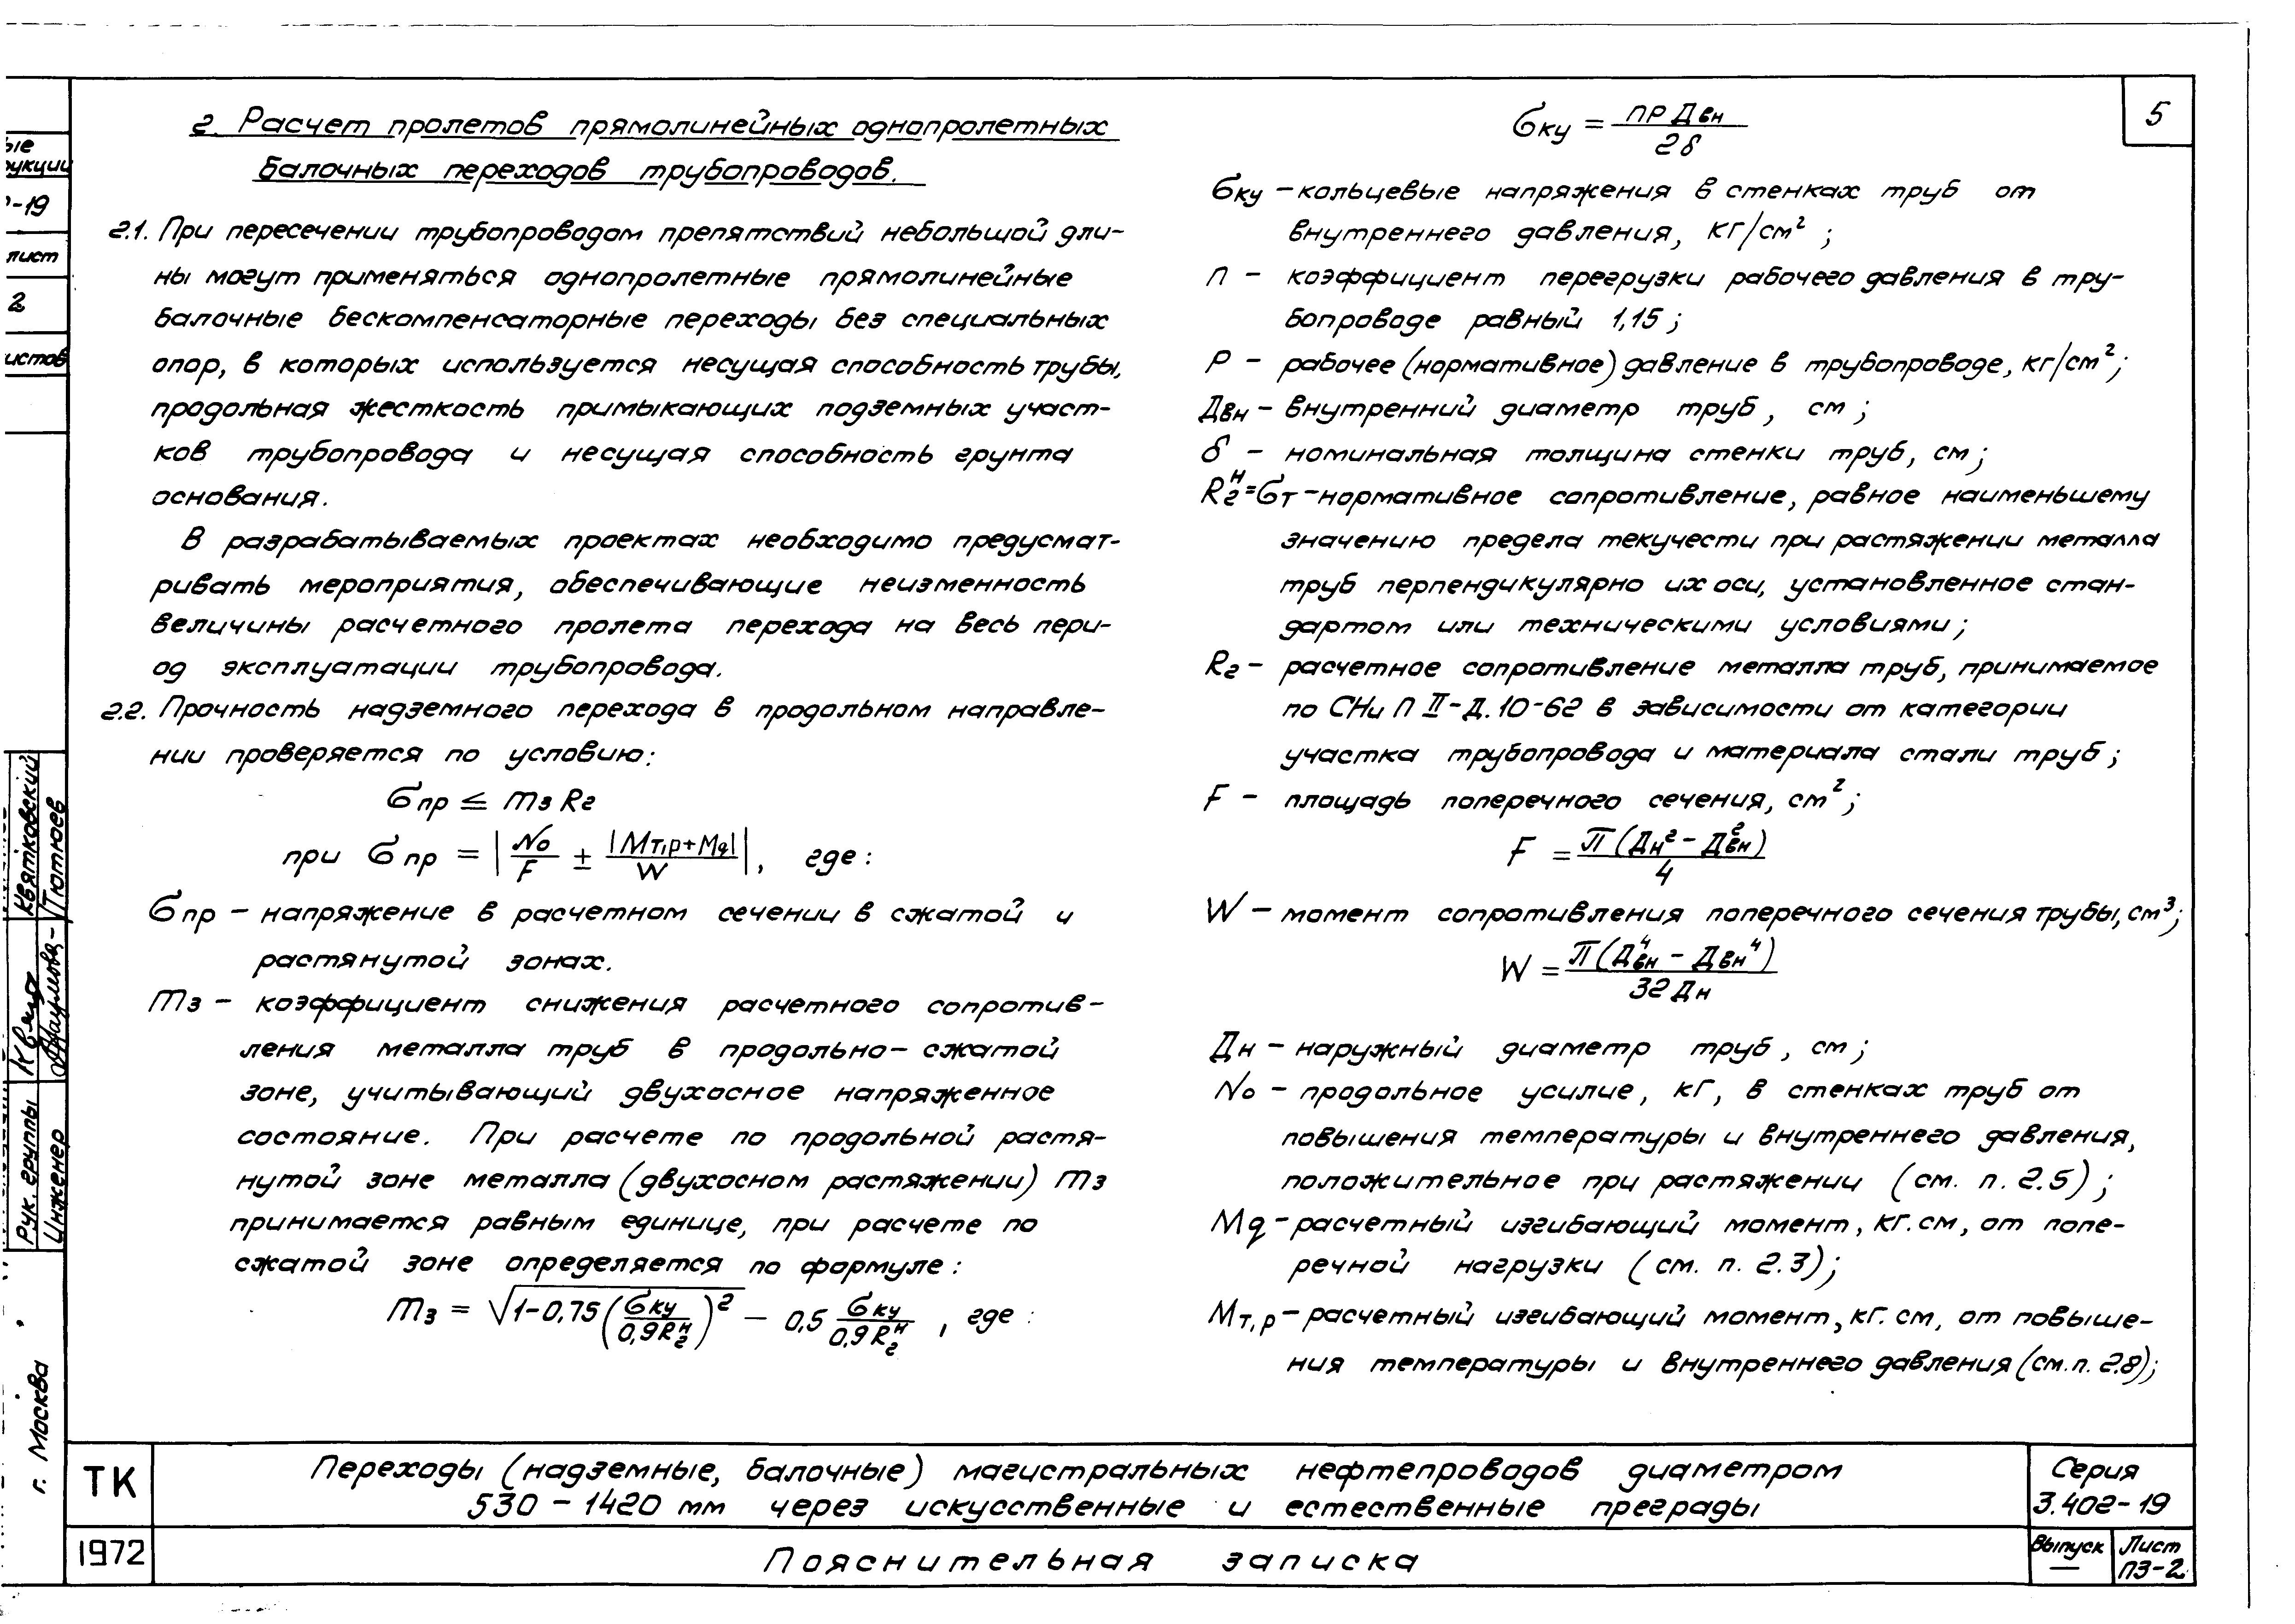 5
2. Расчет пролетов прямолинейных однопролетных
балочных переходов трубопроводов.
2.1. При пересечении трубопроводом препятствий небольшой дли-
ны могут применяться однопролетные прямолинейные
балочные бескомпенсаторные переходы без специальных
опор, в которых используется несущая способность трубы,
продольная жесткость примыкающих подземных участ-
ков трубопровода и несущая способность грунта
основания.
В разрабатываемых проектах необходимо предусмат-
ривать мероприятия, обеспечивающие неизменность
величины расчетного пролета перехода на весь пери-
од эксплуатации трубопровода.
2.2. Прочность надземного перехода в продольном направле-
нии проверяется по условию:
σпр ≤ m₃ R₂
при σпр = | N₀/F ± |Mт,р+Mq|/W |, где:
σпр – напряжение в расчетном сечении в сжатой и
растянутой зонах.
m₃ – коэффициент снижения расчетного сопротив-
ления металла труб в продольно-сжатой
зоне, учитывающий двухосное напряженное
состояние. При расчете по продольной растя-
нутой зоне металла (двухосном растяжении) m₃
принимается равным единице, при расчете по
сжатой зоне определяется по формуле:
m₃ = √1-0,75(σку/0,9R₂ᴴ)² – 0,5 σку/0,9R₂ᴴ, где:
σку = nPДвн/2δ
σку – кольцевые напряжения в стенках труб от
внутреннего давления, кг/см²;
n – коэффициент перегрузки рабочего давления в тру-
бопроводе равный 1,15;
Р – рабочее (нормативное) давление в трубопроводе, кг/см²;
Двн – внутренний диаметр труб, см;
δ – номинальная толщина стенки труб, см;
R₂ᴴ=σт – нормативное сопротивление, равное наименьшему
значению предела текучести при растяжении металла
труб перпендикулярно их оси, установленное стан-
дартом или техническими условиями;
R₂ – расчетное сопротивление металла труб, принимаемое
по СНиП II-Д.10-62 в зависимости от категории
участка трубопровода и материала стали труб;
F – площадь поперечного сечения, см²;
F = π(Дн² – Двн²)/4
W – момент сопротивления поперечного сечения трубы, см³;
W = π(Двн⁴ – Двн⁴)/32Дн
Дн – наружный диаметр труб, см;
N₀ – продольное усилие, кг, в стенках труб от
повышения температуры и внутреннего давления,
положительное при растяжении (см. п. 2.5);
Mq – расчетный изгибающий момент, кг.см, от попе-
речной нагрузки (см. п. 2.3);
Mт,р – расчетный изгибающий момент, кг.см, от повыше-
ния температуры и внутреннего давления (см. п. 2.8);
ые
рукции
-19
лист
2
истов
Квятковский
Тютюев
Рук. группы
Инженер
г. Москва
ТК
1972
Переходы (надземные, балочные) магистральных нефтепроводов диаметром
530 – 1420 мм через искусственные и естественные преграды
Пояснительная записка
Серия
3.402-19
Выпуск
—
Лист
ПЗ-2